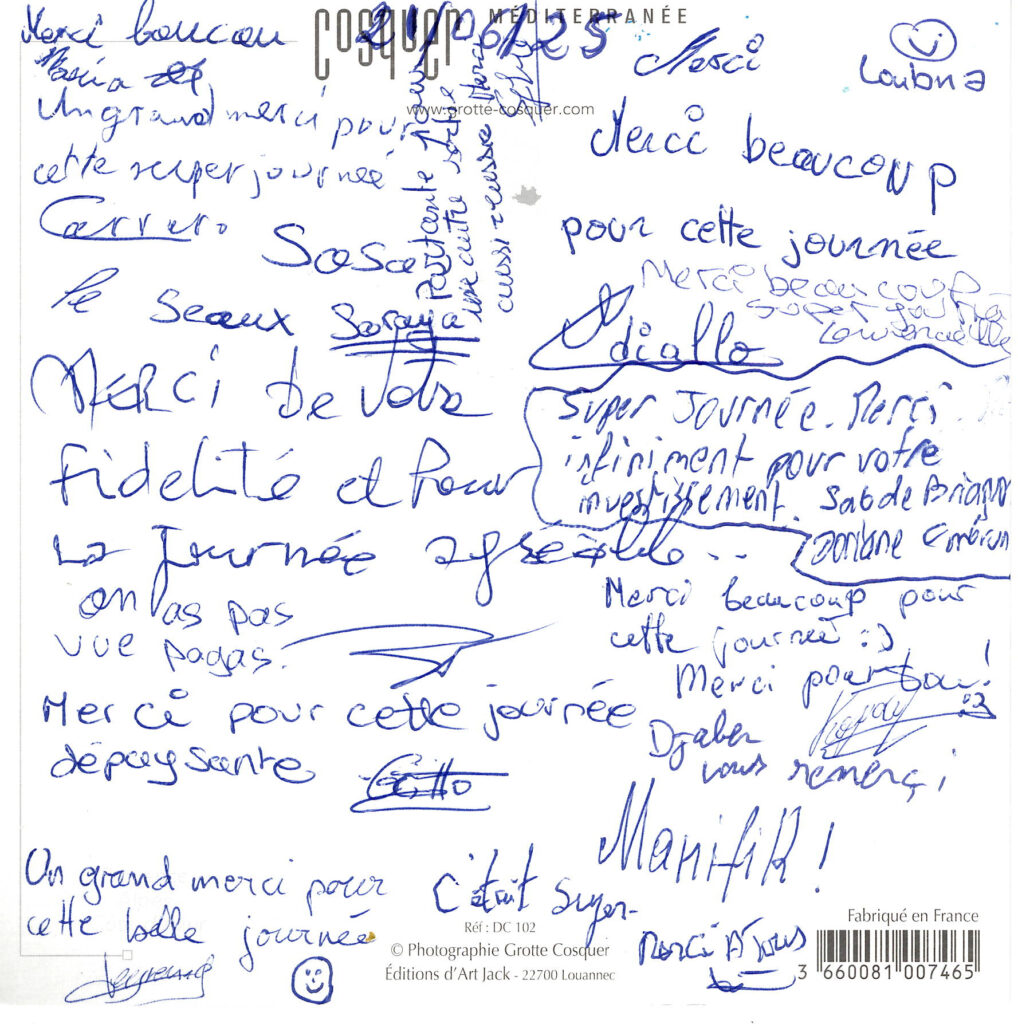 Cosquer MÉDITERRANÉE
21/06/25
www.grotte-cosquer.com
Merci boucou
Maria
Un grand merci pour
cette super journée
Sosa
le Seaux Soraya
Partante pour
une autre sortie
aussi réussie Merci
Merci
Loubna
Merci beaucoup
pour cette journée
diallo
Merci beaucoup
super journée
MERCI De votre
Fidelité et Pour
La Journée agréable ...
Super Journée. Merci.
infiniment pour votre
investissement.
on as pas
vue pagas.
Merci beaucoup pour
cette journée :)
Merci pour tou!
Merci pour cette journée
dépaysante
Djaber
vous remerçi
Manifik !
Un grand merci pour
cette belle journée
C'était super
Merci A Tous
Réf : DC 102
© Photographie Grotte Cosquer
Éditions d'Art Jack - 22700 Louannec
Fabriqué en France
3 660081 007465